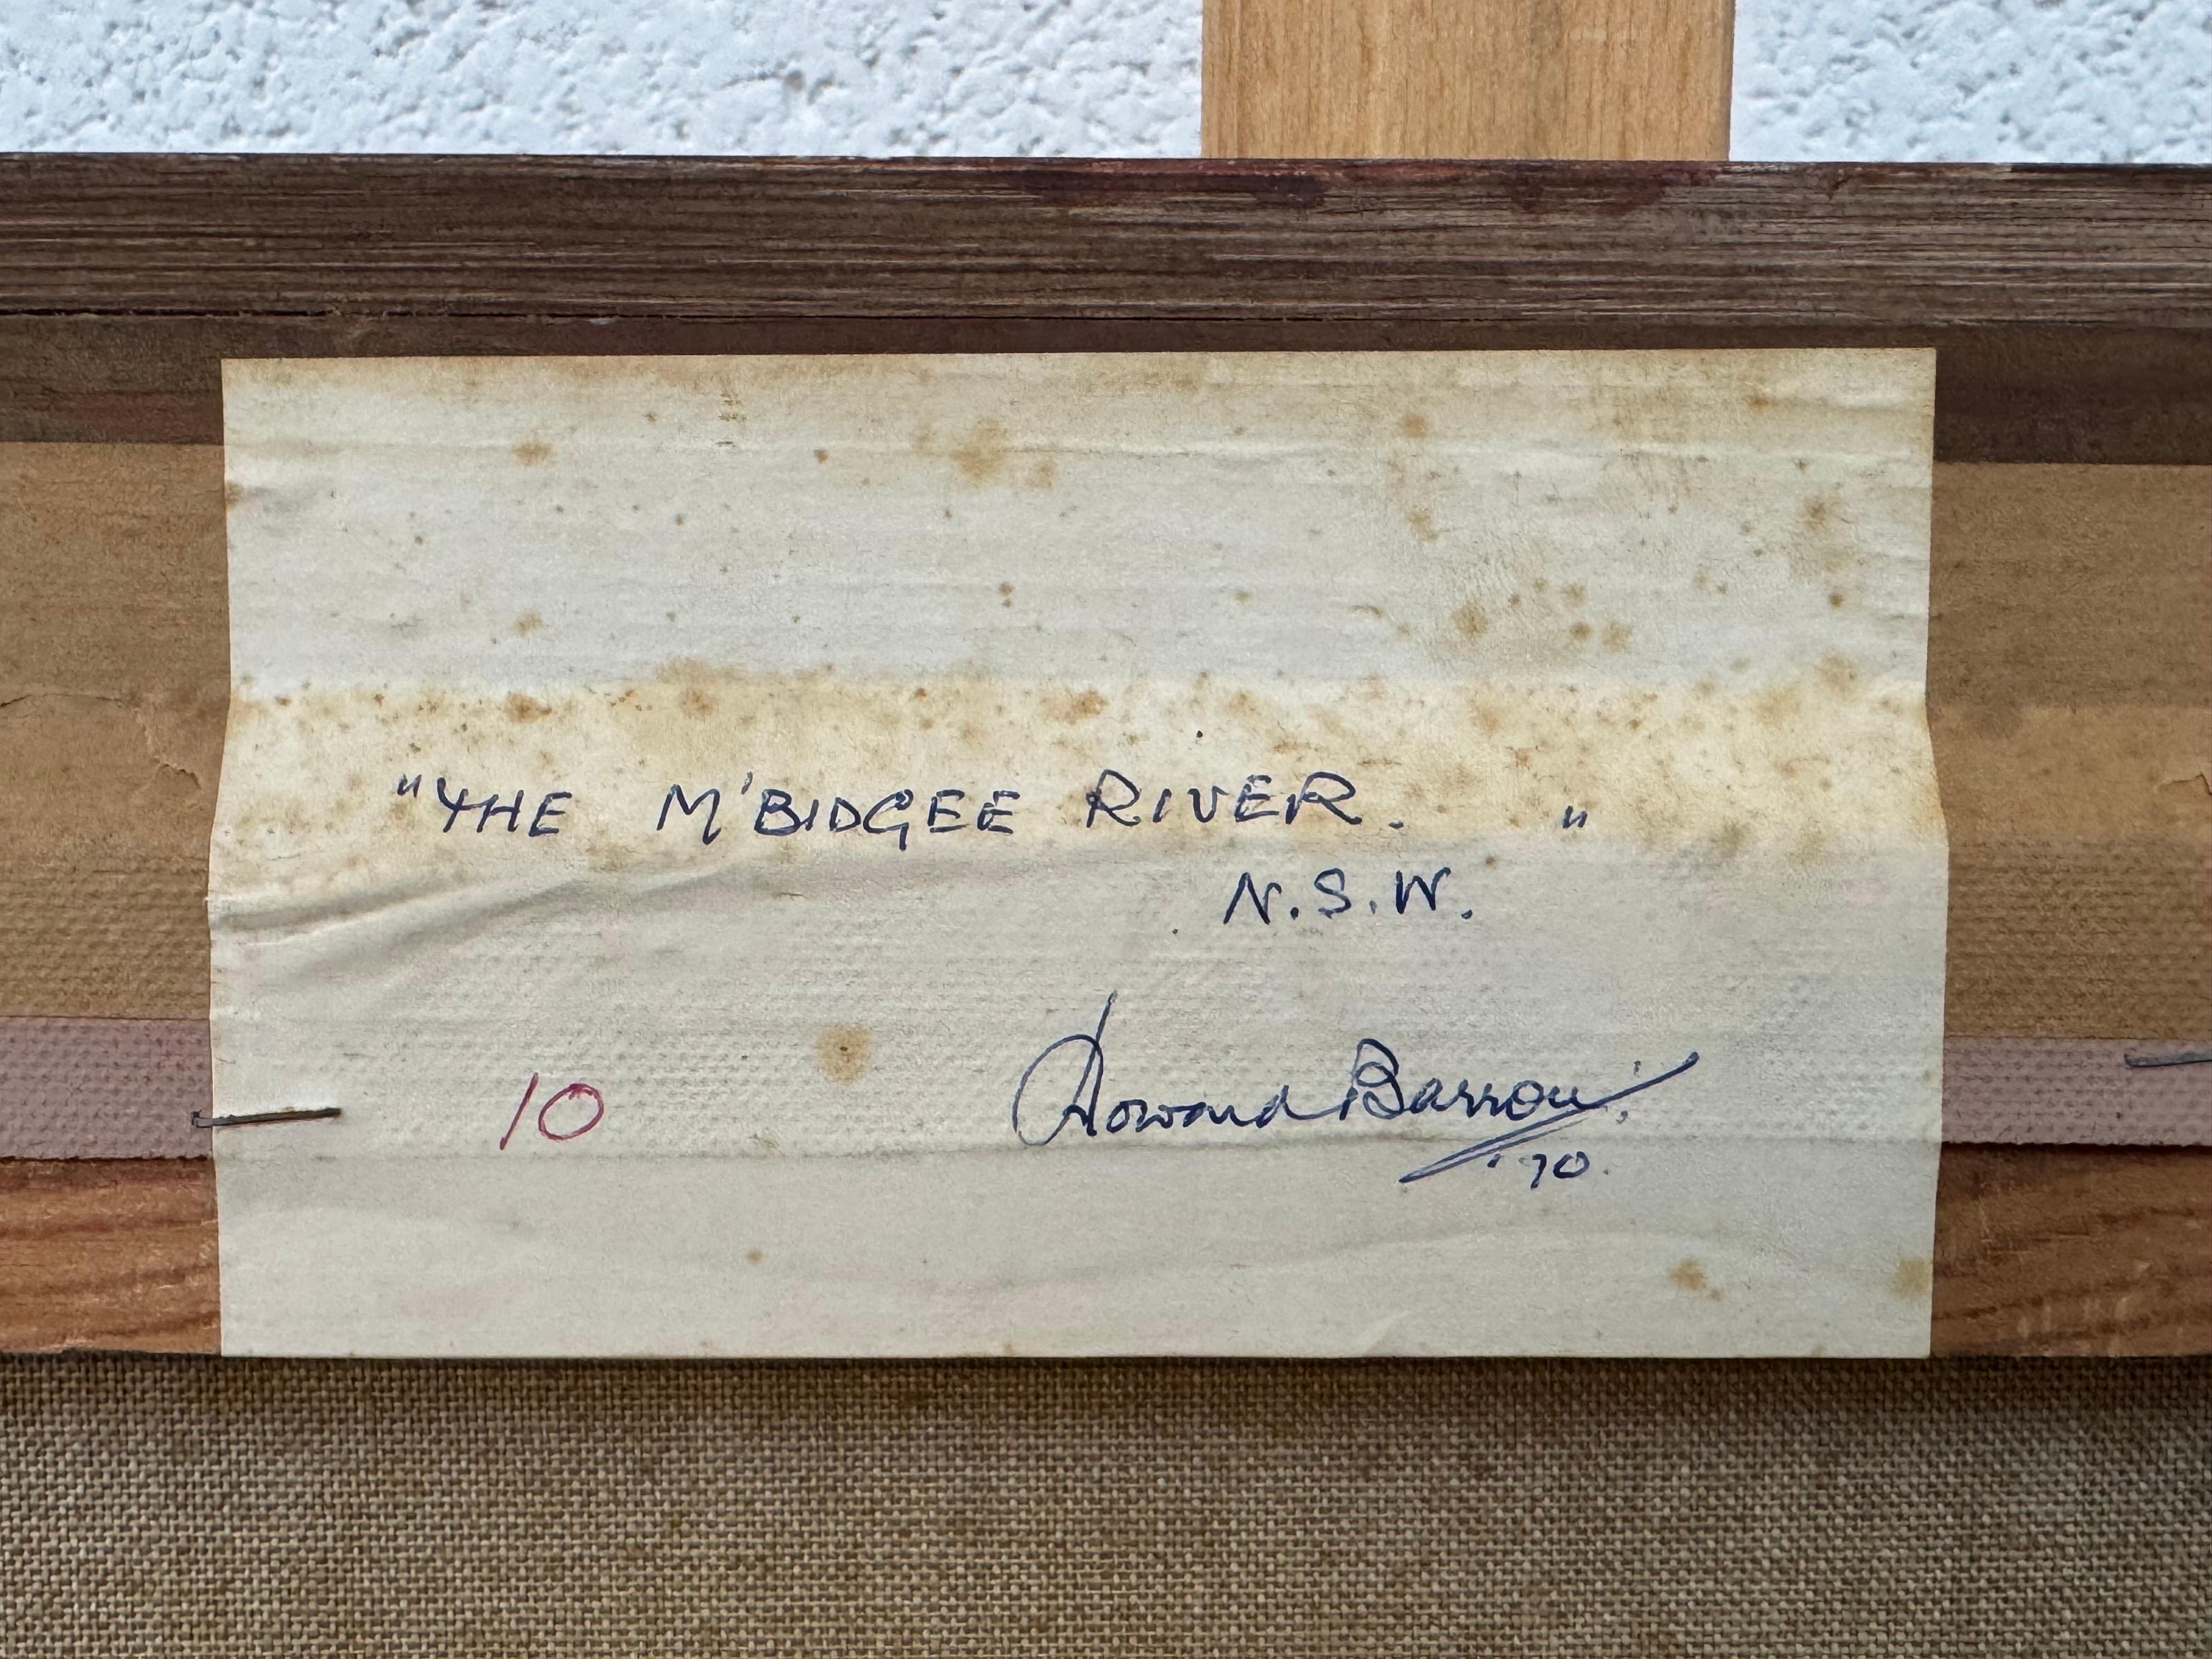 "THE M'BIDGEE RIVER. "
N.S.W.
10 Howard Barron
'70.